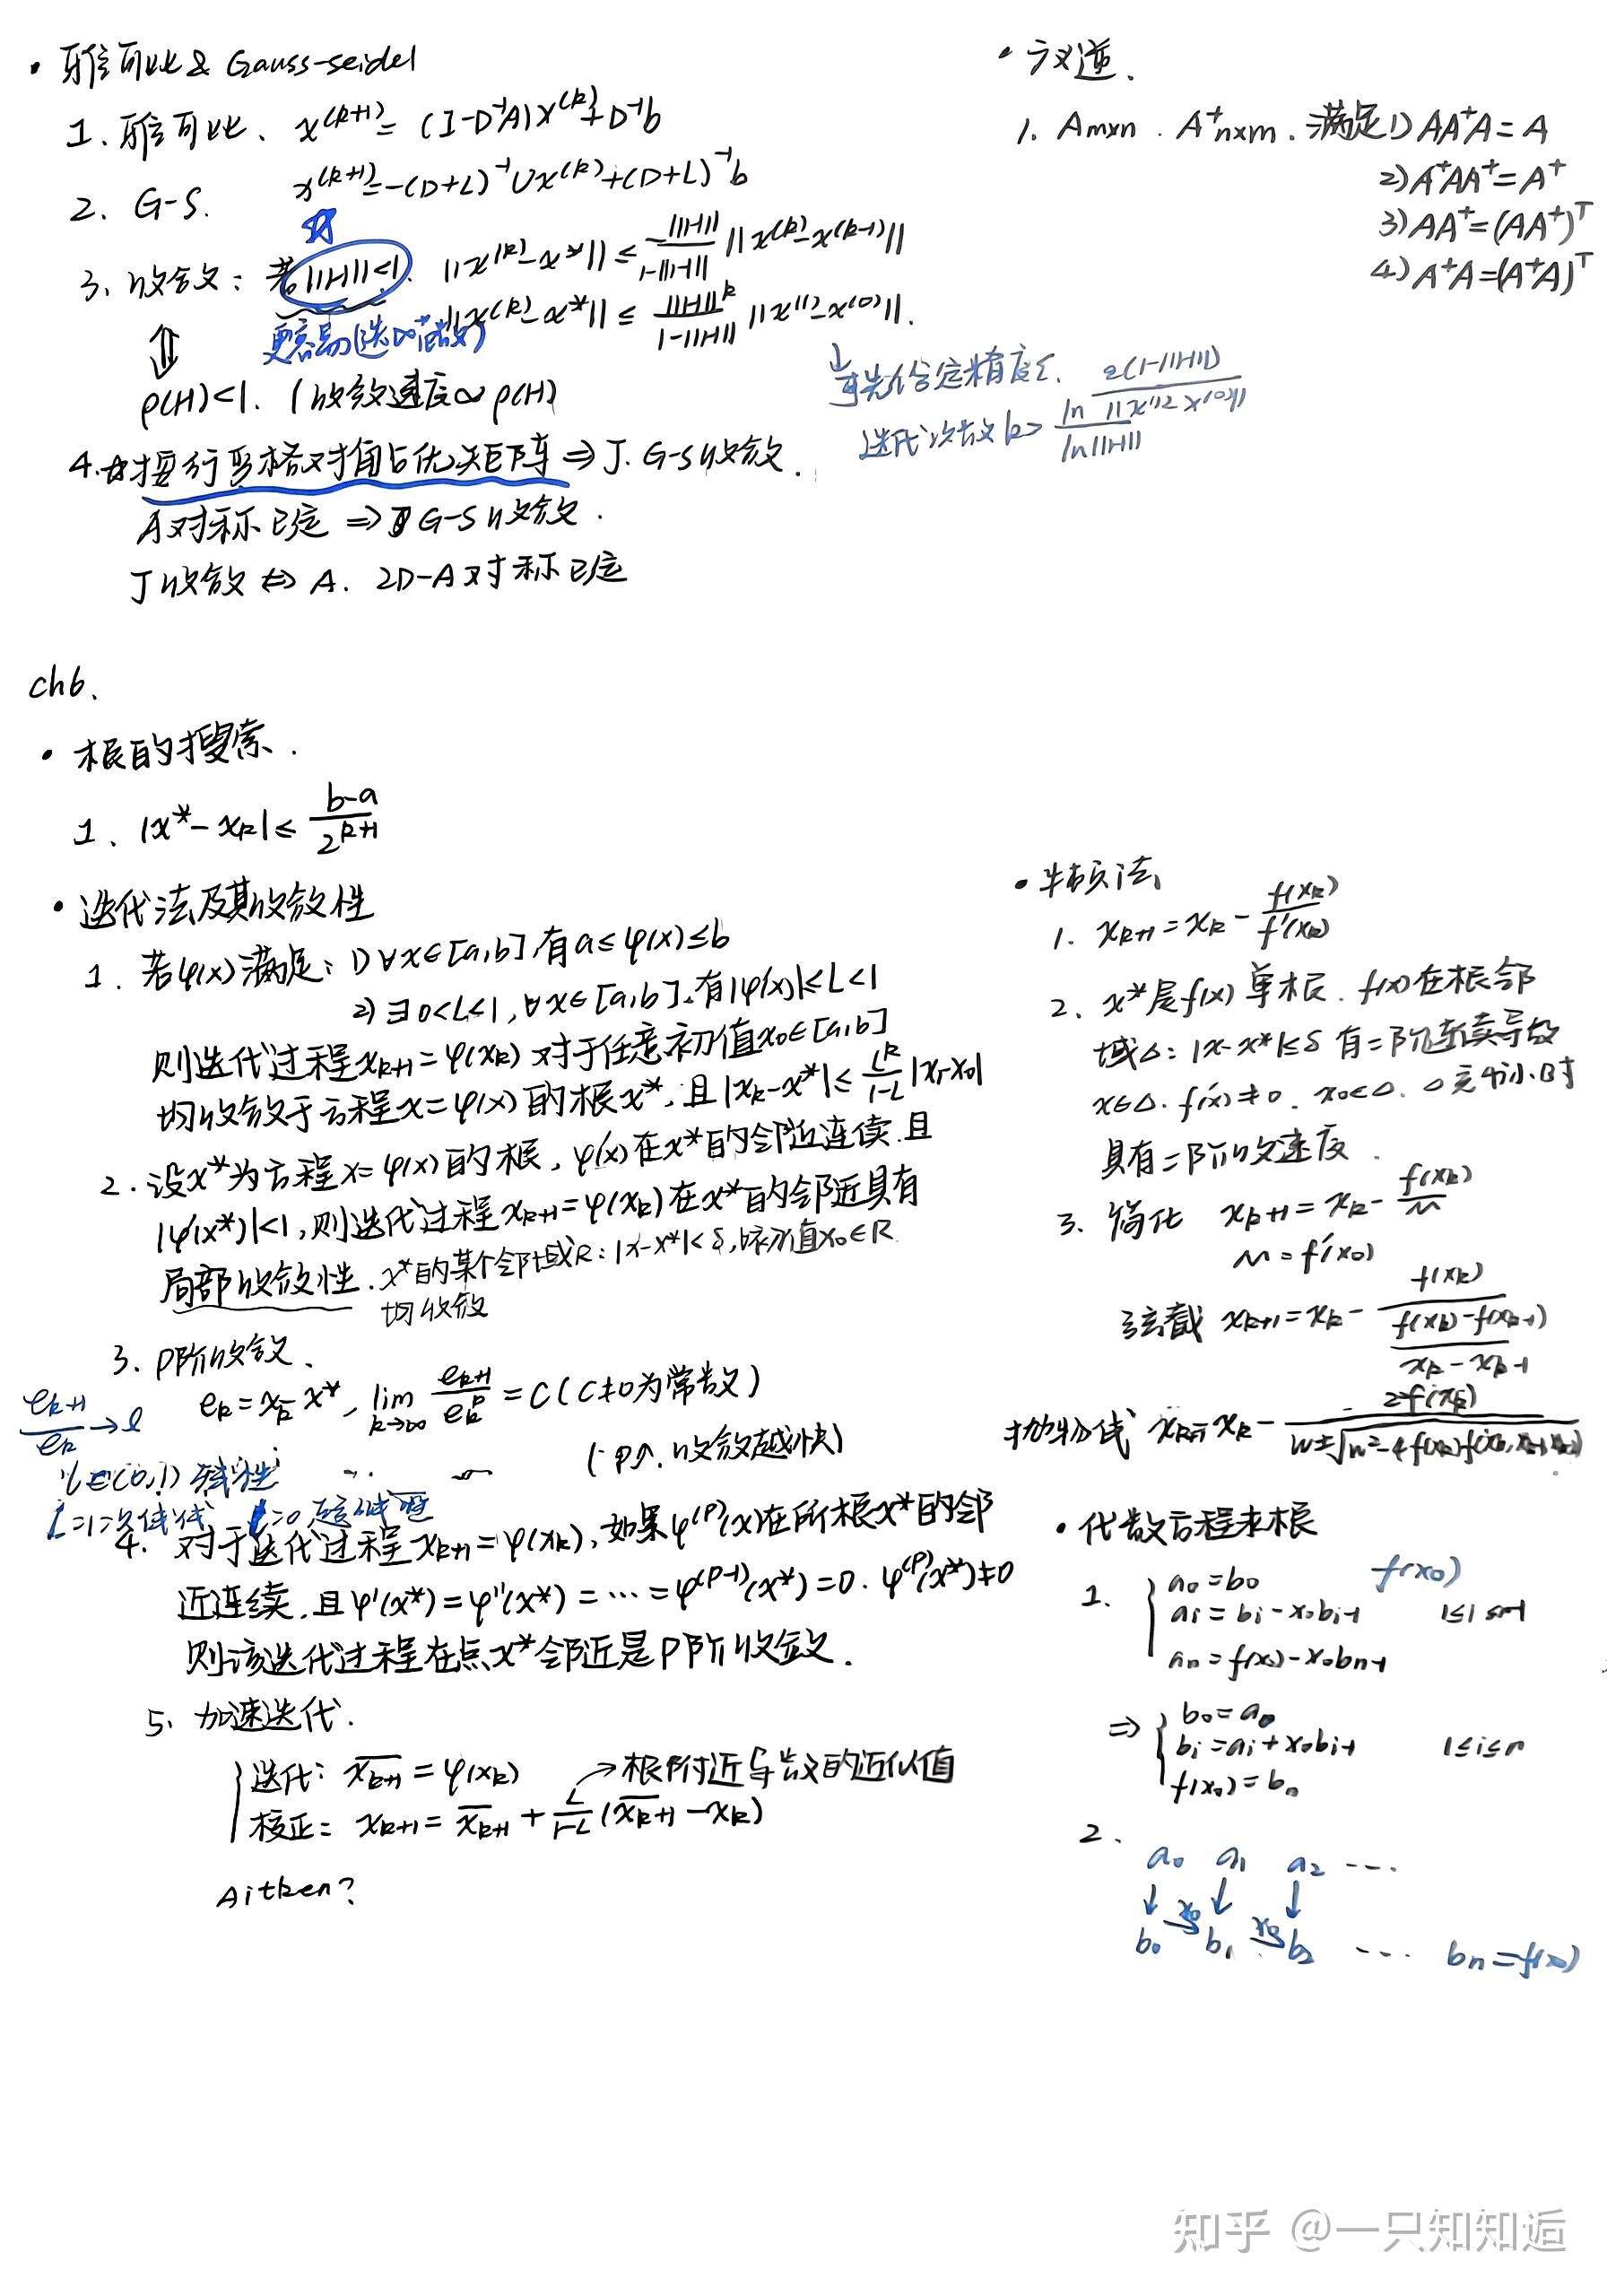 • 雅可比 & Gauss-seidel
1. 雅可比、 x^(k+1) = (I-D⁻¹A)x^(k)+D⁻¹b
2. G-S. x^(k+1) = -(D+L)⁻¹Ux^(k)+(D+L)⁻¹b
3. 收敛: 若||H||<1. ||x^(k)-x*|| ≤ ||H||/(1-||H||) ||x^(k)-x^(k-1)||
||x^(k)-x*|| ≤ ||H||^k/(1-||H||) ||x^(1)-x^(0)||.
更容易(选∞范数)
⇕
ρ(H)<1. (收敛速度∝ρ(H)
可先给定精度ε.
迭代次数k> ln (ε(1-||H||)/||x^(1)-x^(0)||) / ln||H||
4. 按行严格对角占优矩阵 ⇒ J. G-S收敛.
A对称正定 ⇒ G-S收敛.
J收敛 ⇔ A. 2D-A对称正定
• 广义逆、
1. Am×n. A⁺n×m. 满足1) AA⁺A=A
2) A⁺AA⁺=A⁺
3) AA⁺=(AA⁺)ᵀ
4) A⁺A=(A⁺A)ᵀ
ch6.
• 根的搜索.
1、 |x*-xk| ≤ (b-a)/2^(k+1)
• 迭代法及其收敛性
1. 若φ(x)满足: 1) ∀x∈[a,b],有a≤φ(x)≤b
2) ∃0<L<1, ∀x∈[a,b],有|φ'(x)|≤L<1
则迭代过程xk+1=φ(xk)对于任意初值x0∈[a,b]
均收敛于方程x=φ(x)的根x*,且|xk-x*| ≤ L^k/(1-L) |x1-x0|
2. 设x*为方程x=φ(x)的根, φ'(x)在x*的邻近连续.且
|φ'(x*)|<1,则迭代过程xk+1=φ(xk)在x*的邻近具有
局部收敛性. x*的某个邻域R: |x-x*|<δ, 初值x0∈R
均收敛
3. P阶收敛、
ek=xk-x*, lim k→∞ ek+1/ek^p = C (C≠0为常数)
(p↑. 收敛越快)
ek+1/ek → l
l∈(0,1) 线性
l=1 l=0 超线性
4. 对于迭代过程xk+1=φ(xk),如果φ^(p)(x)在所求根x*的邻
近连续.且φ'(x*)=φ''(x*)=…=φ^(p-1)(x*)=0. φ^(p)(x*)≠0
则该迭代过程在点x*邻近是P阶收敛.
5、加速迭代.
迭代: x̄k+1=φ(xk) L→根附近导数的近似值
校正: xk+1 = x̄k+1 + L/(1-L) (x̄k+1-xk)
Aitken?
• 牛顿法、
1. xk+1=xk - f(xk)/f'(xk)
2、x*是f(x)单根. f(x)在根邻
域Δ: |x-x*|≤δ 有二阶连续导数
x∈Δ. f'(x)≠0. x0∈Δ. Δ充分小时
具有二阶收速度.
3. 简化 xk+1=xk - f(xk)/M
M=f'(x0)
弦截 xk+1=xk - f(xk)/((f(xk)-f(xk-1))/(xk-xk-1))
抛物线 xk+1=xk - 2f(xk)/(w±√(w²-4f(xk)f(xk,xk-1,xk-2)))
• 代数方程求根
1. a0=b0 f(x0)
ai=bi-x0bi-1 1≤i≤n-1
an=f(x0)-x0bn-1
⇒ b0=a0
bi=ai+x0bi-1 1≤i≤n
f(x0)=bn
2、
a0 a1 a2 ….
↓ x0 ↓ x0 ↓
b0 → b1 → b2 …. bn=f(x0)
知乎 @一只知知逅